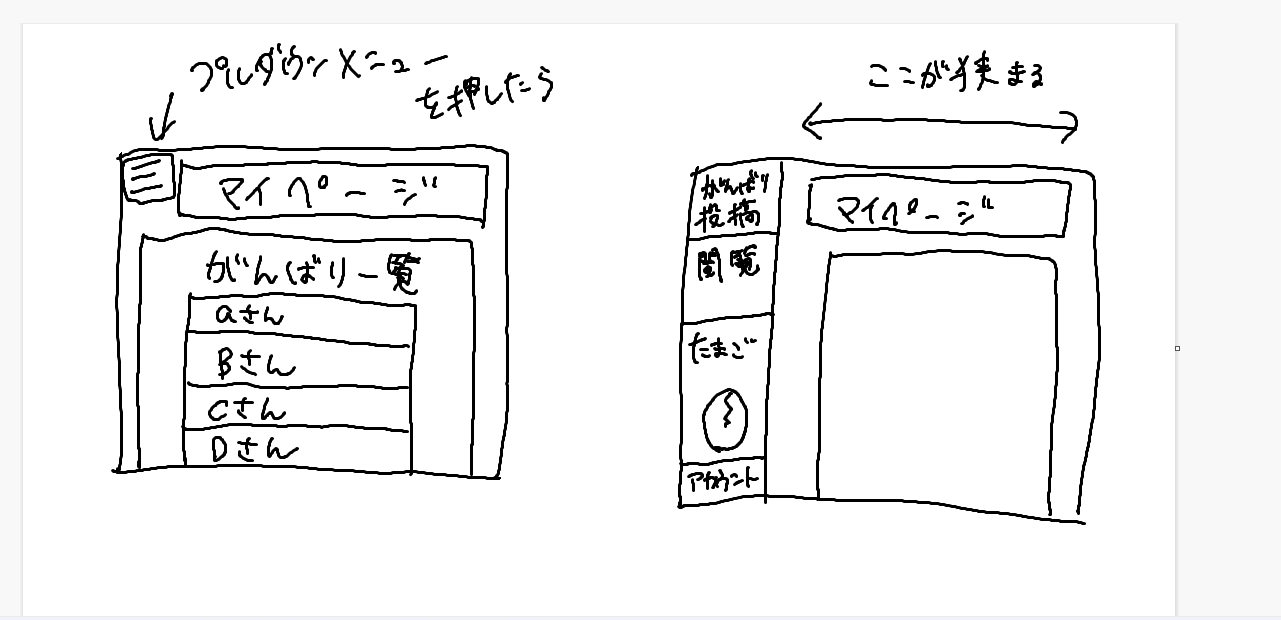 プルダウンメニュー
を押したら
マイページ
がんばり一覧
aさん
Bさん
Cさん
Dさん
ここが狭まる
がんばり
投稿
閲覧
たまご
アカウント
マイページ